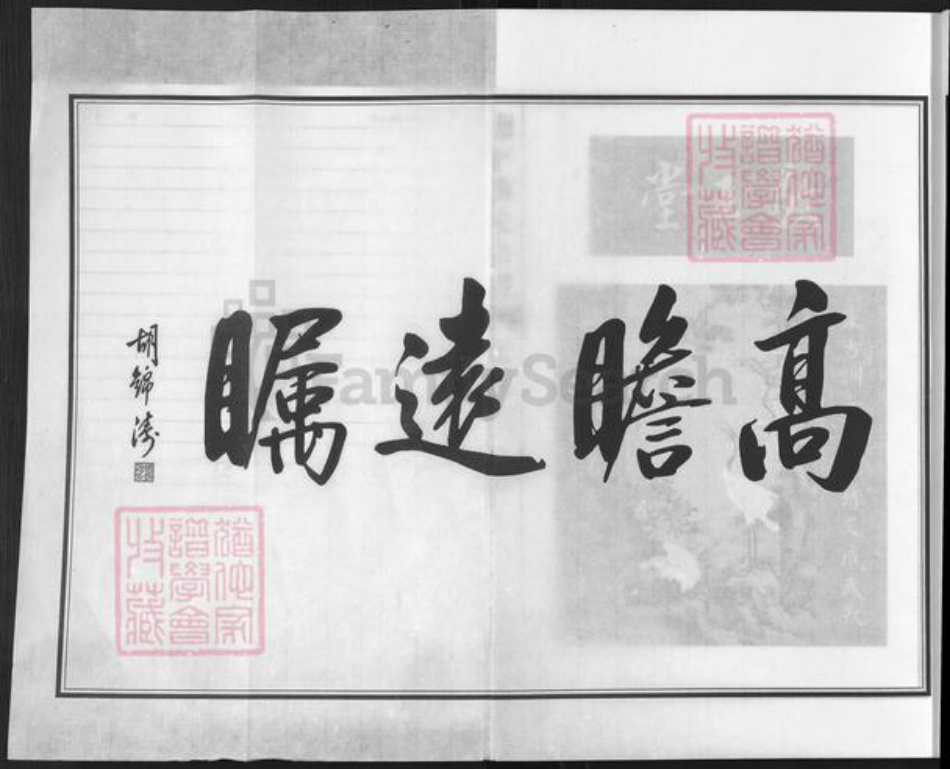 高瞻遠矚
胡錦濤
猶他家
譜學會
收藏
猶他家
譜學會
收藏
FamilySearch
堂